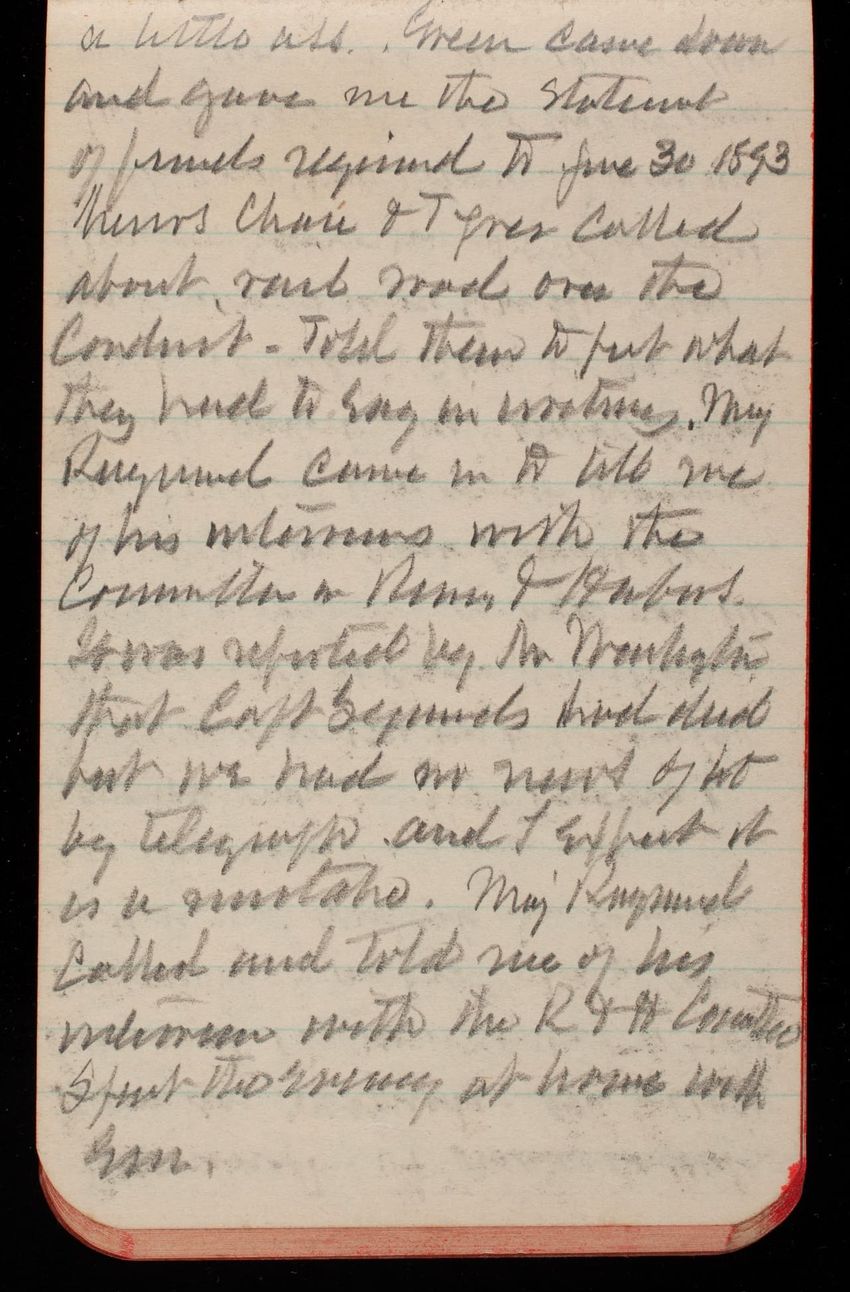 a little ass.. Green came down
and gave me the Statemt
of funds required to June 30 1893
Messrs Chase & Tyrer Called
about rail road over the
Conduit - Told them to put what
they had to say in writing. Maj
Raymond came in to tell me
of his interviews with the
Committee on Rivers & Harbors.
It was reported by Mr
that Capt had died
but we had no news of it
by telegraph and I expect it
is a mistake. Maj Raymond
Called and told me of his
interview with the R & H Comttee
Spent the evening at home with